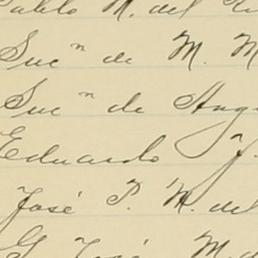 Pablo M. del
Sucn de M. M
Sucn de Ang
Eduardo J.
José P. M. del
José M. del